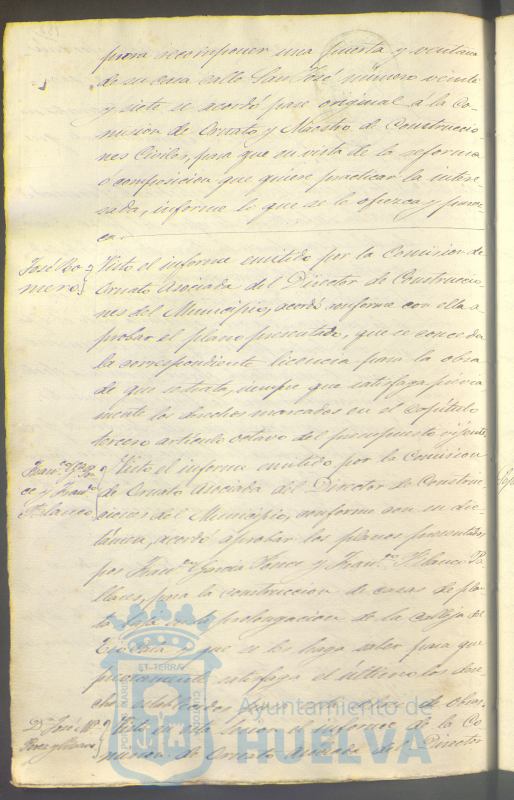 para recomponer una puerta y ventana
de su casa calle San José número veinte
y siete se acordó pase original á la Co-
mision de Ornato y Maestro de Construccio
nes Civiles, para que en vista de la reforma
o composicion que quiere practicar la intere-
sada, informe lo que se le ofrezca y parez-
ca.
José Ro-
mero.
Visto el informe emitido por la Comision de
Ornato Asociada del Director de Construccio
nes del Municipio, acordó conforme con ella a-
probar el plano presentado, que se conceda
la correspondiente licencia para la obra
de que se trata, siempre que satisfaga previa
mente los derechos marcados en el capítulo
tercero artículo octavo del presupuesto vijente.
y Fran.co
Blanco
Visto el informe emitido por la Comision
de Ornato Asociada del Director de Construc
ciones del Municipio, conforme con su dic-
támen, acordó aprobar los planos presentados
por Fran.co García y Fran.co Blanco
para la construccion de casas de plan-
ta baja en la prolongacion de la calleja de
y que se les haga saber para que
previamente satisfaga el último los dere
chos establecidos de obras.
D. José M.a
Visto en este lugar el informe de la Co
mision de Ornato Asociada del Director
PORTUS MARIS
ET TERRAE
CUSTODIA
Ayuntamiento de
HUELVA